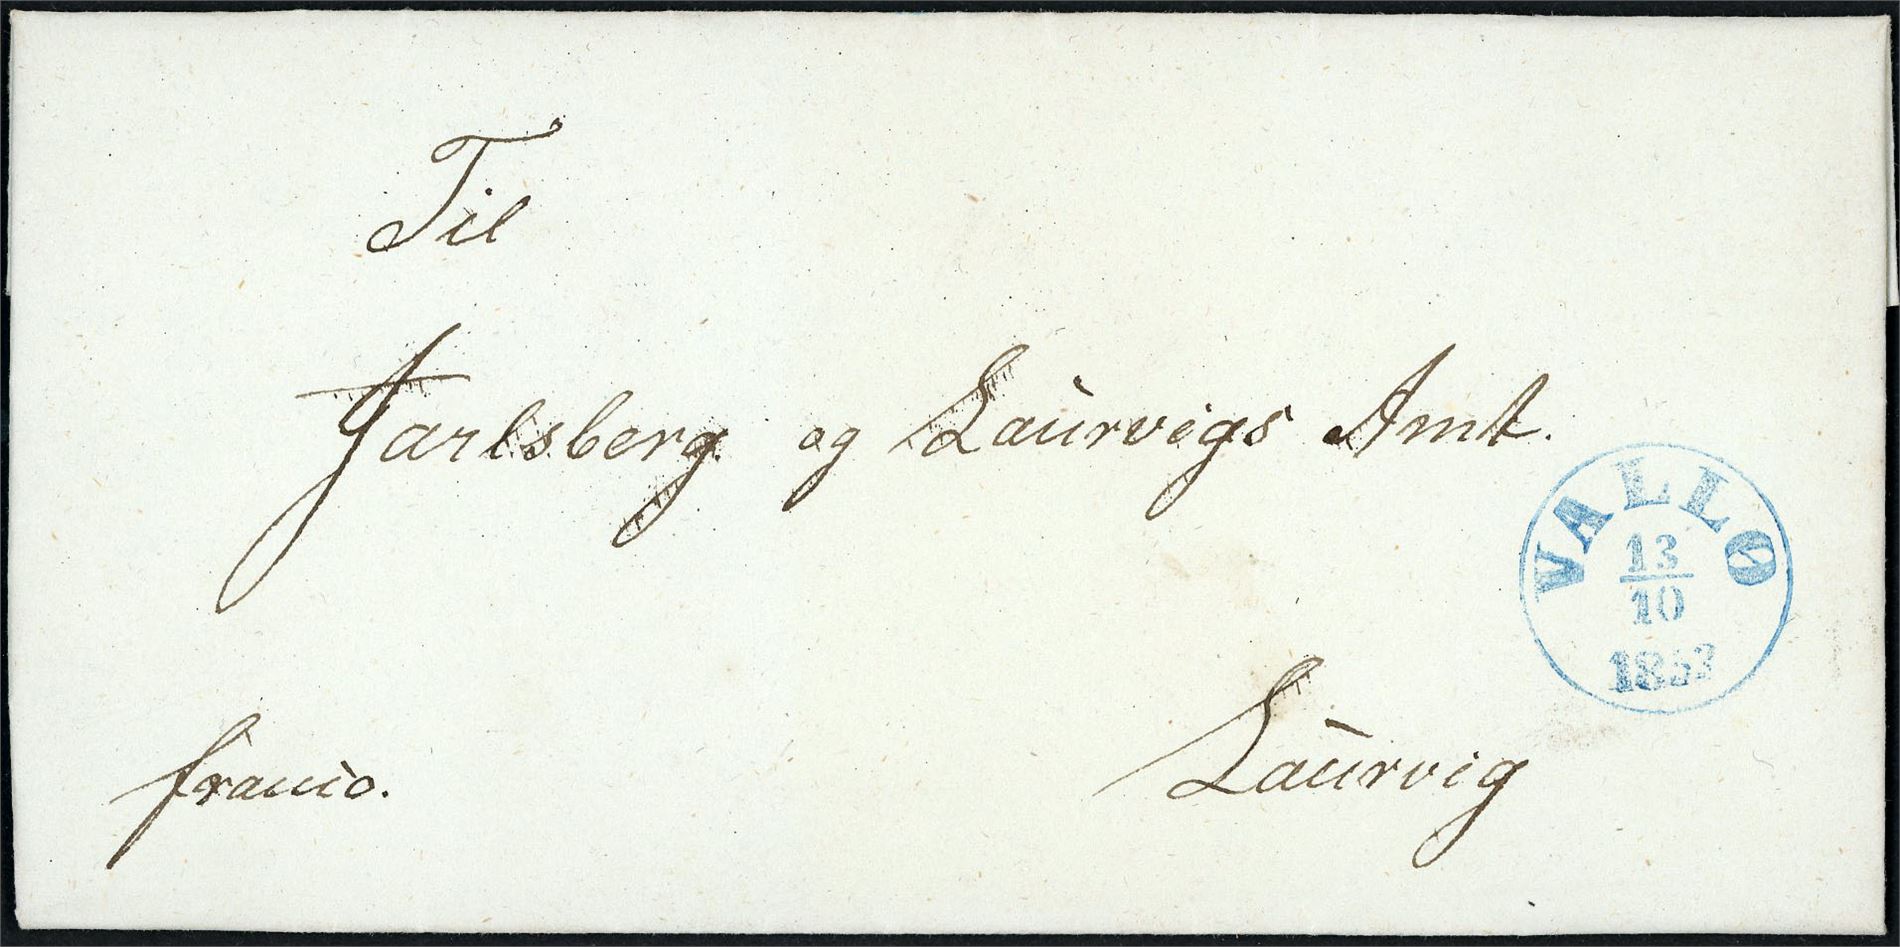 Til
Jarlsberg og Laurvigs Amt.
VALLØ
13
10
1853
Laurvig
franco.